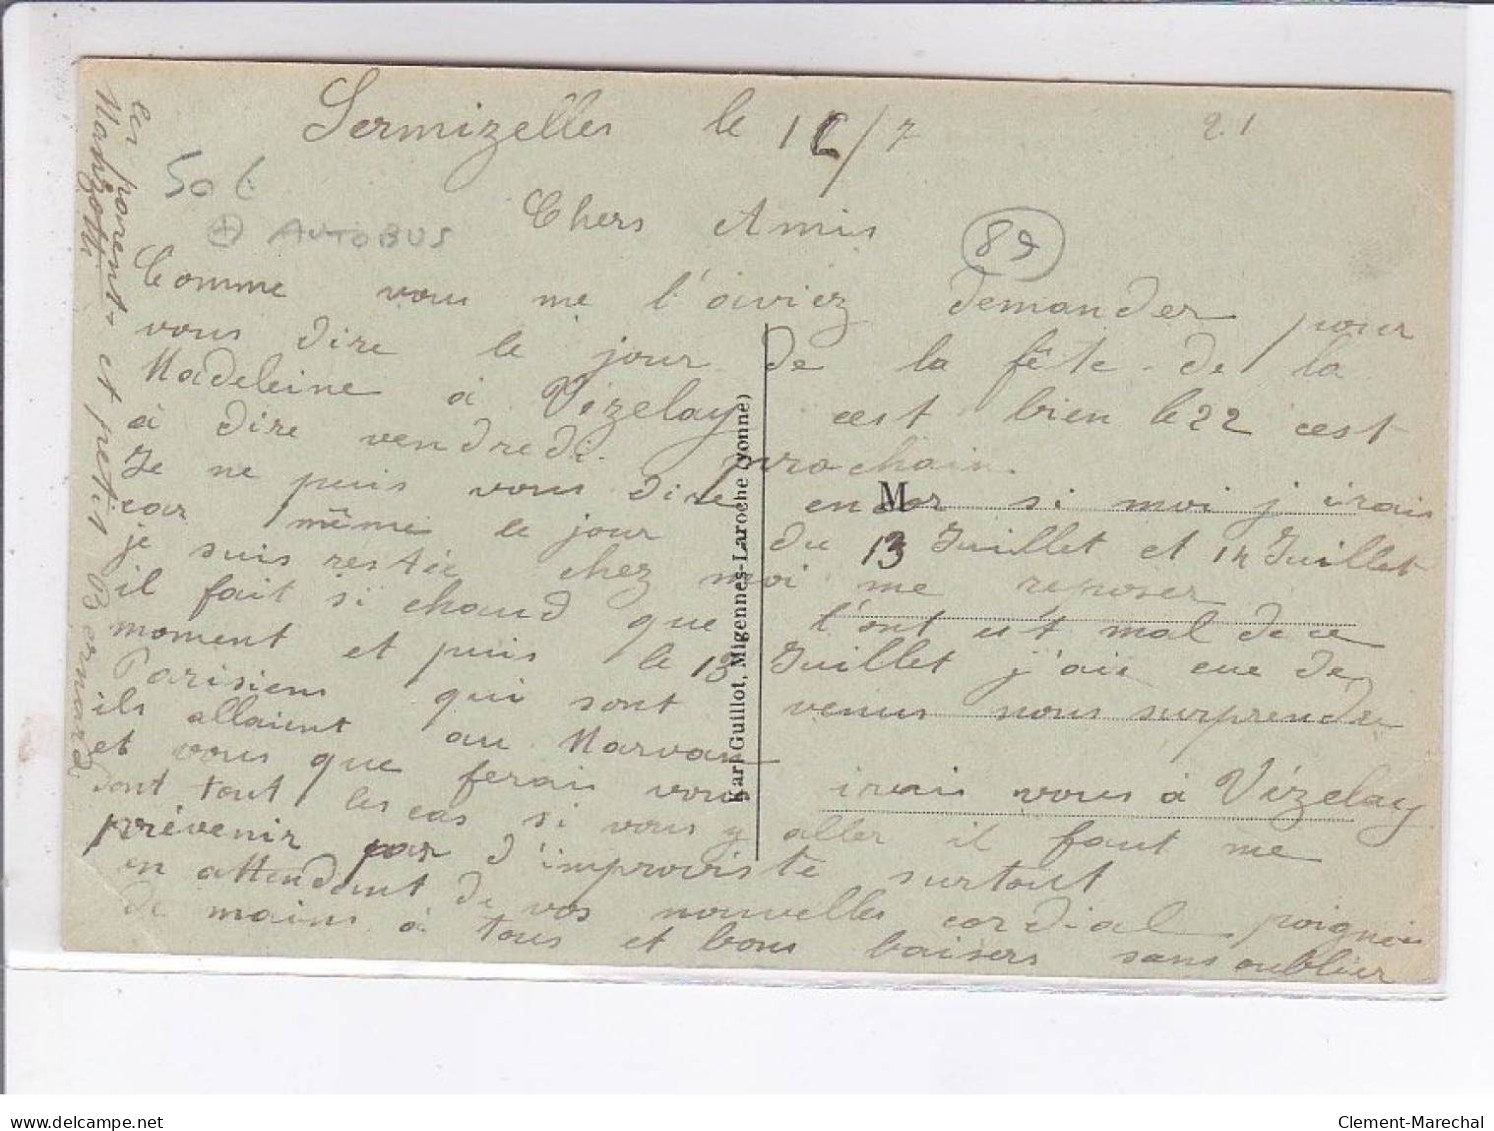 Sermizelles le 16/7 21
50 €
+ AUTOBUS
89
Chers Amis
Comme vous me l'aviez demander pour
vous dire le jour de la fête de la
Madeleine à Vézelay cest bien le 22 cest
à dire vendredi prochain.
Je ne puis vous dire encor si moi j irais
car même le jour du 13 Juillet et 14 Juillet
je suis restée chez moi me reposer
il fait si chaud que l'ont est mal de ce
moment et puis le 13 Juillet j'aie eue de
Parisiens qui sont venus nous surprendre
ils allaient au Marvan
et vous que ferais vous irais vous à Vézelay
dont tout les cas si vous y aller il faut me
prévenir par d'improviste surtout
en attendant de vos nouvelles cordial poignée
de mains à tous et bons baisers sans oublier
les parents et petit Bernard
M
Karl Guillot, Migennes-Laroche (yonne)
delcampe.net
Clement-Marechal